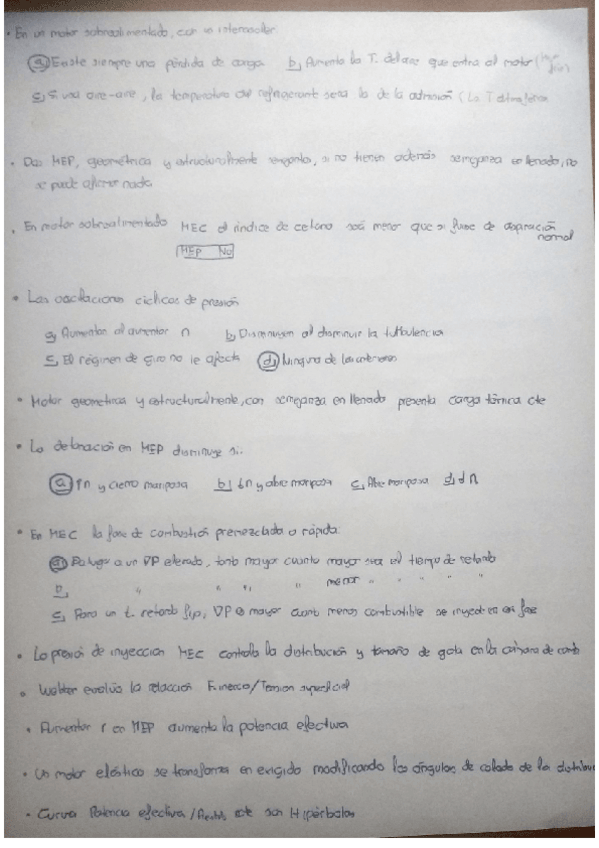 • En un motor sobrealimentado, con un intercooler.
ⓐ Existe siempre una pérdida de carga b) Aumenta la T. del aire que entra al motor
c) Si usa aire-aire, la temperatura del refrigerante sera la de la admisión (La T
• Dos MEP, geométrica y estructuralmente semejantes, si no tienen además semejanza en llenado, no
se puede afirmar nada
• En motor sobrealimentado MEC el índice de cetano será menor que si fuese de aspiración
normal
MEP No
• Las oscilaciones cíclicas de presión
a) Aumentan al aumentar n b) Disminuyen al disminuir la turbulencia
c) El régimen de giro no le afecta ⓓ Ninguna de las anteriores
• Motor geometrica y estructuralmente, con semejanza en llenado presenta carga térmica cte
• La detonación en MEP disminuye si..
ⓐ ↑n y cierro mariposa b) ↓n y abre mariposa c) Abre mariposa d) ↓ n
• En MEC la fase de combustión premezclada o rápida:
ⓐ Da lugar a un DP elevado, tanto mayor cuanto mayor sea el tiempo de retardo
b) " " " " menor " " " "
c) Para un t. retardo fijo, DP es mayor cuanto menos combustible se inyect en esa fase
• La presión de inyección MEC controla la distribución y tamaño de gota en la cámara de comb
• Webber evalúa la relacción F. inercia/Tension superficial
• Aumentar r en MEP aumenta la potencia efectiva
• Un motor elástico se transforma en exigido modificando los ángulos de calado de la distribu
• Curva Potencia efectiva/ cte son Hipérbolas